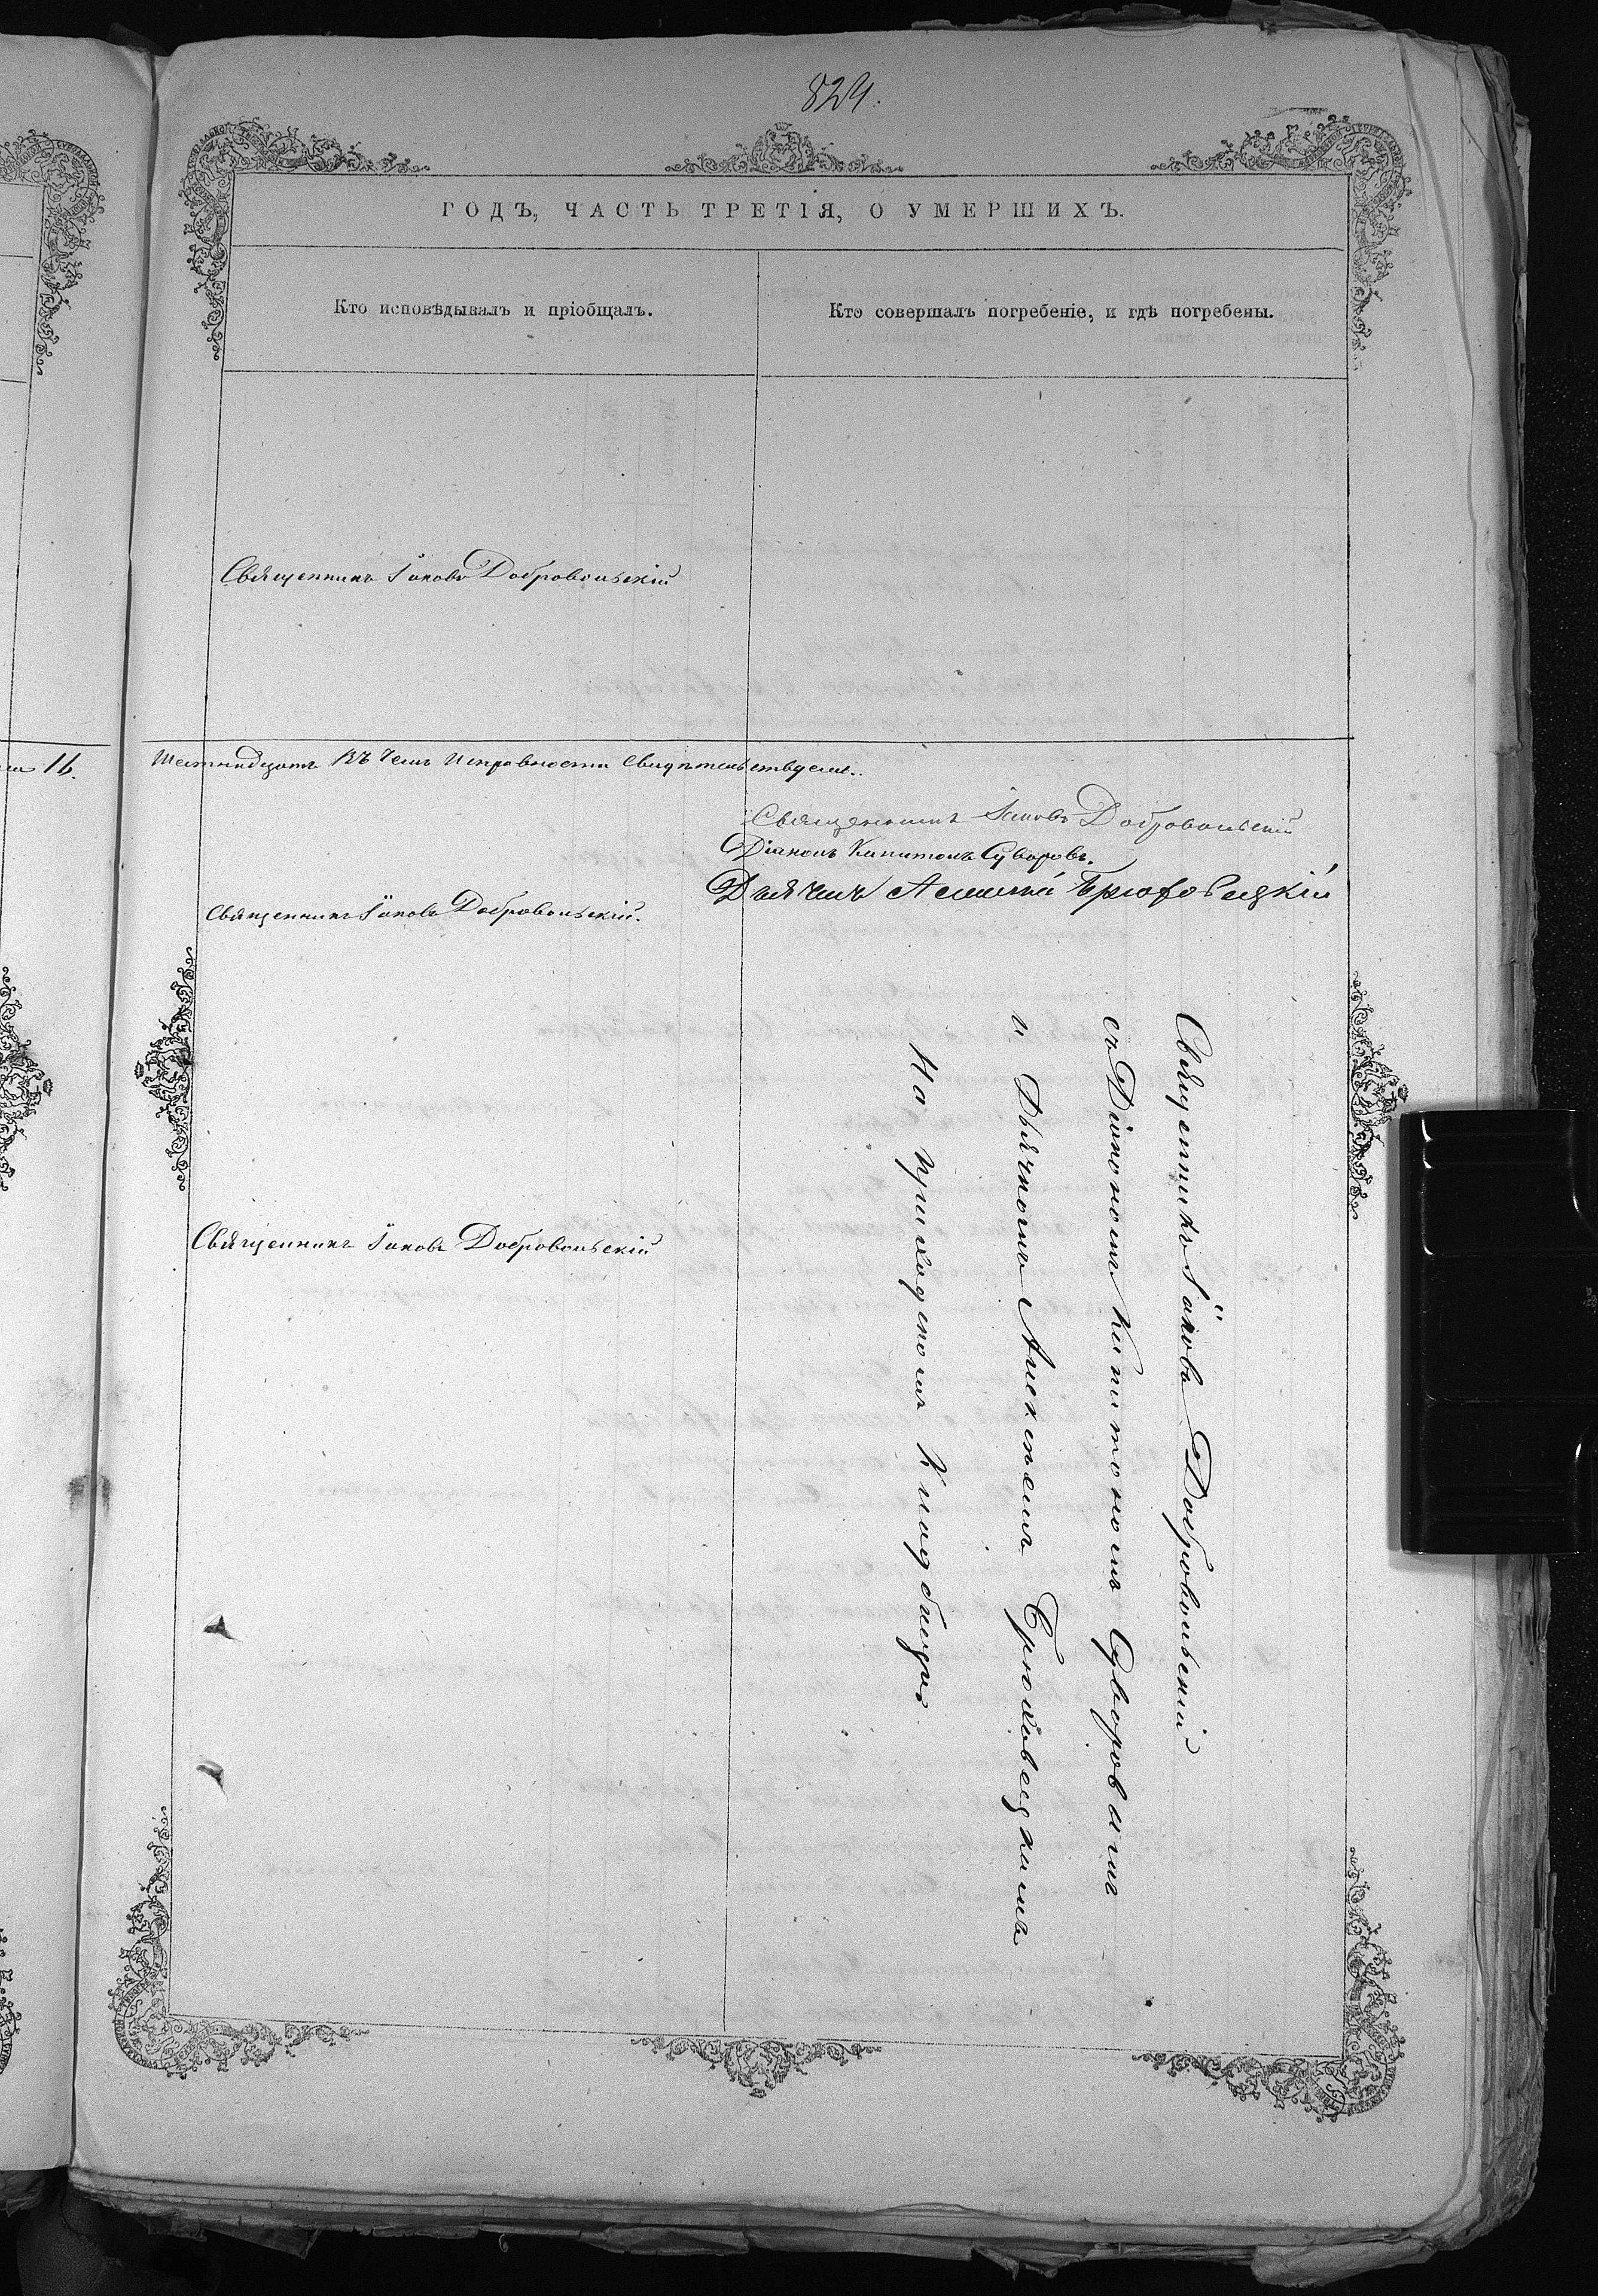 824.
ГОДЪ, ЧАСТЬ ТРЕТІЯ, О УМЕРШИХЪ.
Кто исповѣдывалъ и пріобщалъ.
Кто совершалъ погребеніе, и гдѣ погребены.
Священникъ Іаковъ Добровольскій
16.
Шестнадцать Въ чемъ исправности свидѣтельствуемъ..
Священникъ Іаковъ Добровольскій
Діаконъ Капитонъ Суворовъ.
Дьячекъ Алексѣй Брюховецкій
Священникъ Іаковъ Добровольскій.
Священникъ Іаковъ Добровольскій
Священникъ Іаковъ Добровольскій
съ Діакономъ Капитономъ Суворовымъ
и Дьячкомъ Алексѣемъ Брюховецкимъ
На приходскомъ Кладбищѣ